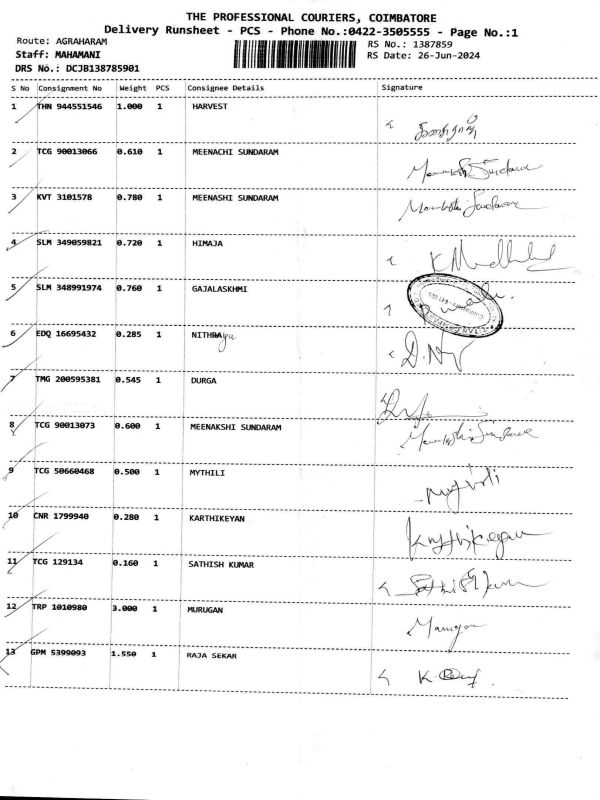 THE PROFESSIONAL COURIERS, COIMBATORE
Delivery Runsheet - PCS - Phone No.:0422-3505555 - Page No.:1
Route: AGRAHARAM RS No.: 1387859
Staff: MAHAMANI RS Date: 26-Jun-2024
DRS No.: DCJB138785901
S No Consignment No Weight PCS Consignee Details Signature
1 THN 944551546 1.000 1 HARVEST
2 TCG 90013066 0.610 1 MEENACHI SUNDARAM
3 KVT 3101578 0.780 1 MEENASHI SUNDARAM
4 SLM 349059821 0.720 1 HIMAJA
5 SLM 348991974 0.760 1 GAJALASKHMI
6 EDQ 16695432 0.285 1
7 TMG 200595381 0.545 1 DURGA
8 TCG 90013073 0.600 1 MEENAKSHI SUNDARAM
9 TCG 50660468 0.500 1 MYTHILI
Mythili
10 CNR 1799940 0.280 1 KARTHIKEYAN
11 TCG 129134 0.160 1 SATHISH KUMAR
12 TRP 1010980 3.000 1 MURUGAN
13 GPM 5399093 1.550 1 RAJA SEKAR